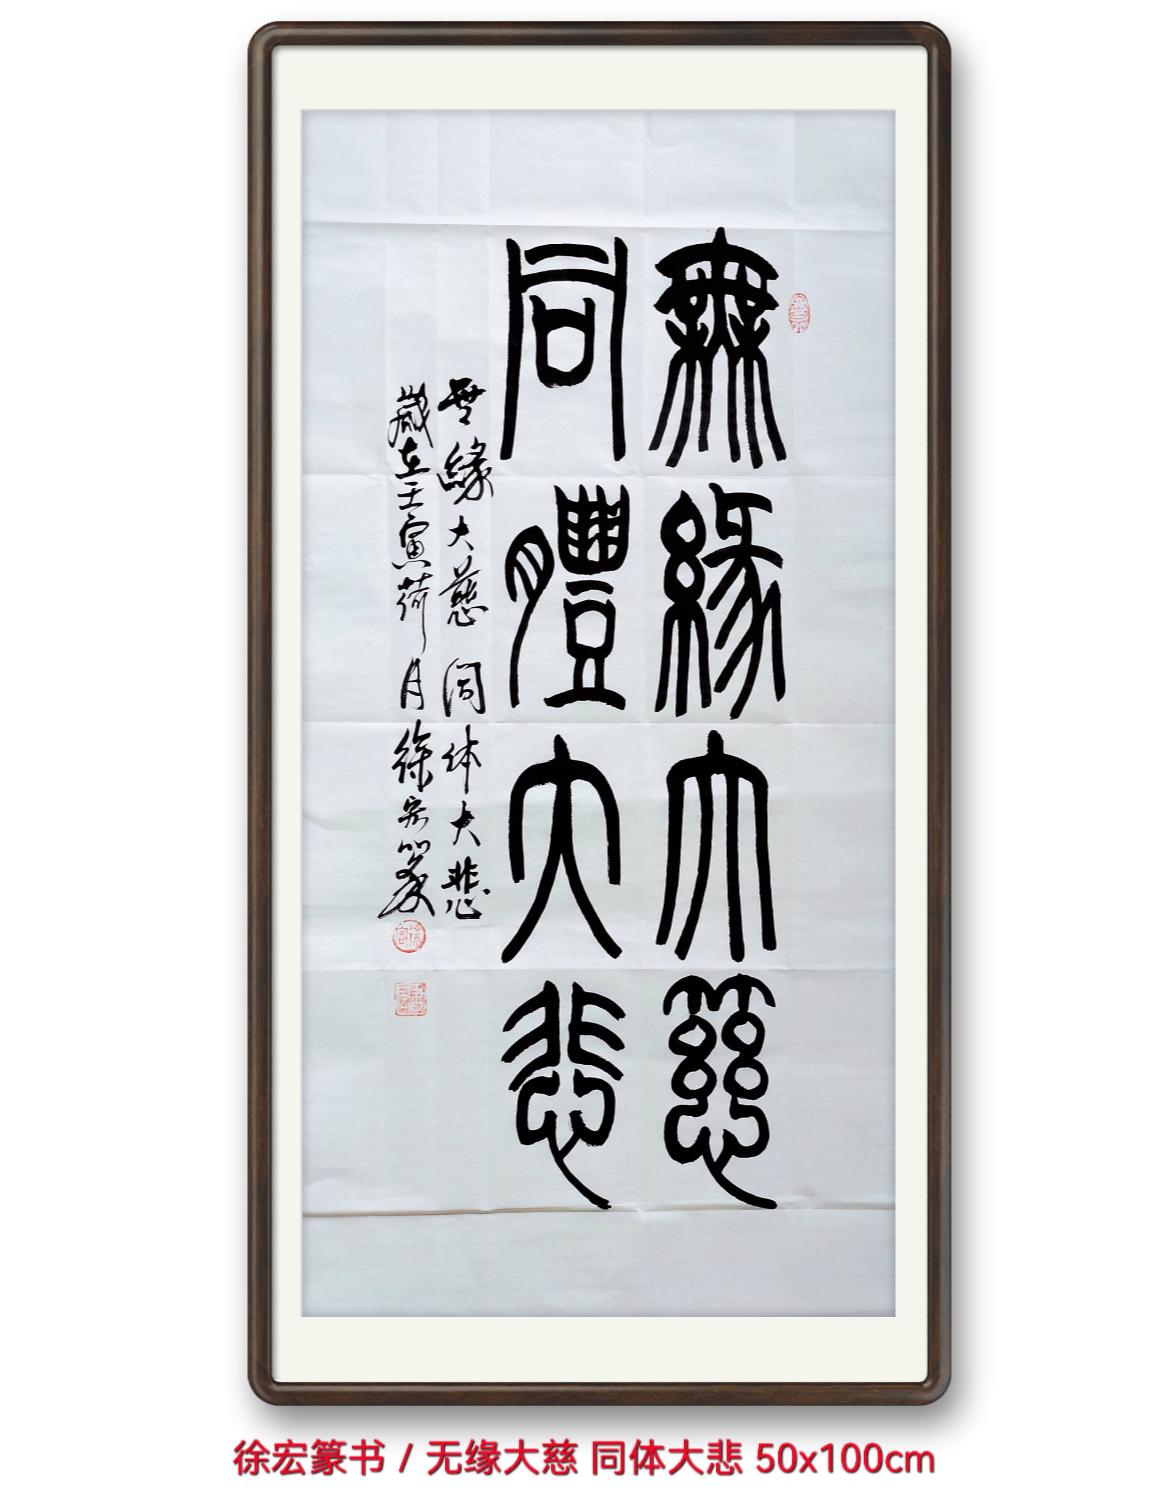 無緣大慈
同體大悲
無緣大慈同体大悲
歲在壬寅荷月徐宏篆
徐宏篆书 / 无缘大慈 同体大悲 50x100cm